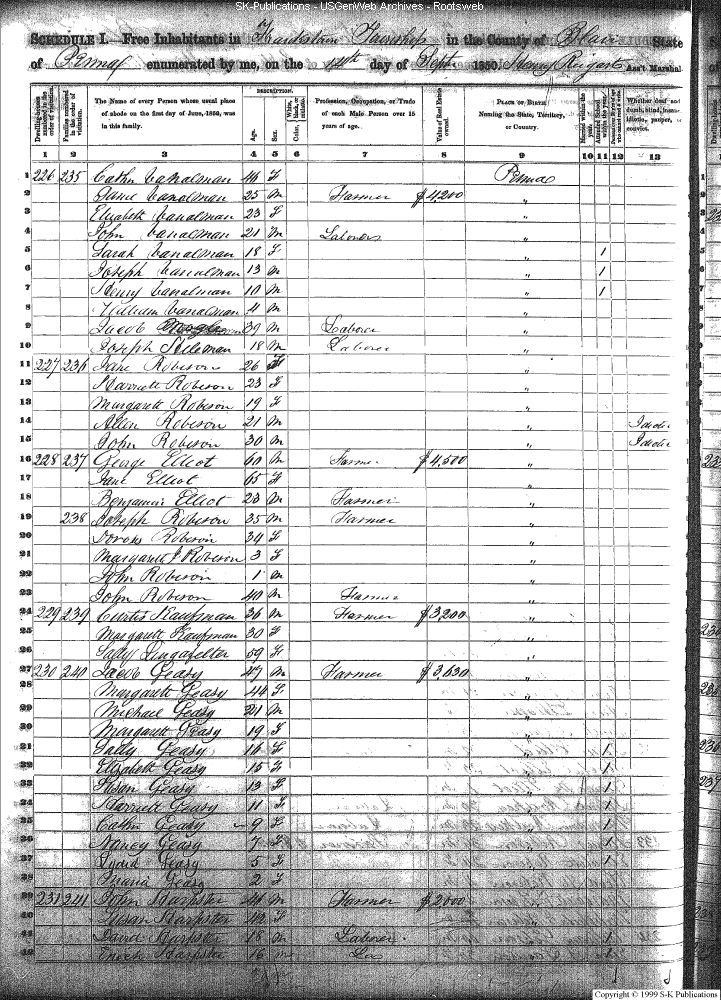 SK-Publications - USGenWeb Archives - Rootsweb
SCHEDULE I. Free Inhabitants in Township in the County of Blair State
of Penna enumerated by me, on the 14th day of Sept 1850. Henry Ass't Marshal.
DESCRIPTION.
Dwelling-houses numbered in the order of visitation.
Families numbered in the order of visitation.
The Name of every Person whose usual place of abode on the first day of June, 1850, was in this family.
Age.
Sex.
White, black, or mulatto. Color
Profession, Occupation, or Trade of each Male Person over 15 years of age.
Value of Real Estate owned.
PLACE OF BIRTH. Naming the State, Territory, or Country.
Married within the year.
Attended School within the year.
Persons over 20 y'rs of age who cannot read & write.
Whether deaf and dumb, blind, insane, idiotic, pauper, or convict.
1 2 3 4 5 6 7 8 9 10 11 12 13
1 226 235 Cathn Canalman 46 F Penna
2 Canalman 25 m Farmer $4,200 "
3 Elizabeth Canalman 23 F "
4 John Canalman 21 m Laborer "
5 Sarah Canalman 18 F " 1
6 Joseph Canalman 13 m " 1
7 Henry Canalman 10 m " 1
8 William Canalman 4 m "
9 Jacob 39 m Laborer "
10 Joseph 18 m Laborer "
11 227 236 Jane Roberson 26 F "
12 Harriett Roberson 23 F "
13 Margarett Roberson 19 F "
14 Allen Roberson 21 m "
15 John Roberson 30 m "
16 228 237 George Elliot 60 m Farmer $4,500 "
17 Jane Elliot 65 F "
18 Benjamin Elliot 23 m Farmer "
19 238 Joseph Roberson 35 m Farmer "
20 Roberson 34 F "
21 Margarett J Roberson 3 F "
22 John Roberson 1 m "
23 John Roberson 40 m Farmer "
24 229 239 Curtis Kaufman 36 m Farmer $3,200 "
25 Margarett Kaufman 30 F "
26 Sally 59 F "
27 230 240 Jacob Geasy 47 m Farmer $3,630 "
28 Margarett Geasy 44 F "
29 Michael Geasy 21 m "
30 Margarett Geasy 19 F "
31 Sally Geasy 16 F " 1
32 Elizabeth Geasy 15 F " 1
33 Susan Geasy 13 F " 1
34 Harriett Geasy 11 F " 1
35 Cathn Geasy 9 F " 1
36 Nancy Geasy 7 F " 1
37 Lydia Geasy 5 F " 1
38 Maria Geasy 2 F "
39 231 241 John Harpster 44 m Farmer $2000 "
40 Susan Harpster 42 F "
41 David Harpster 18 m Laborer "
42 Harpster 16 m
Copyright © 1999 S-K Publications